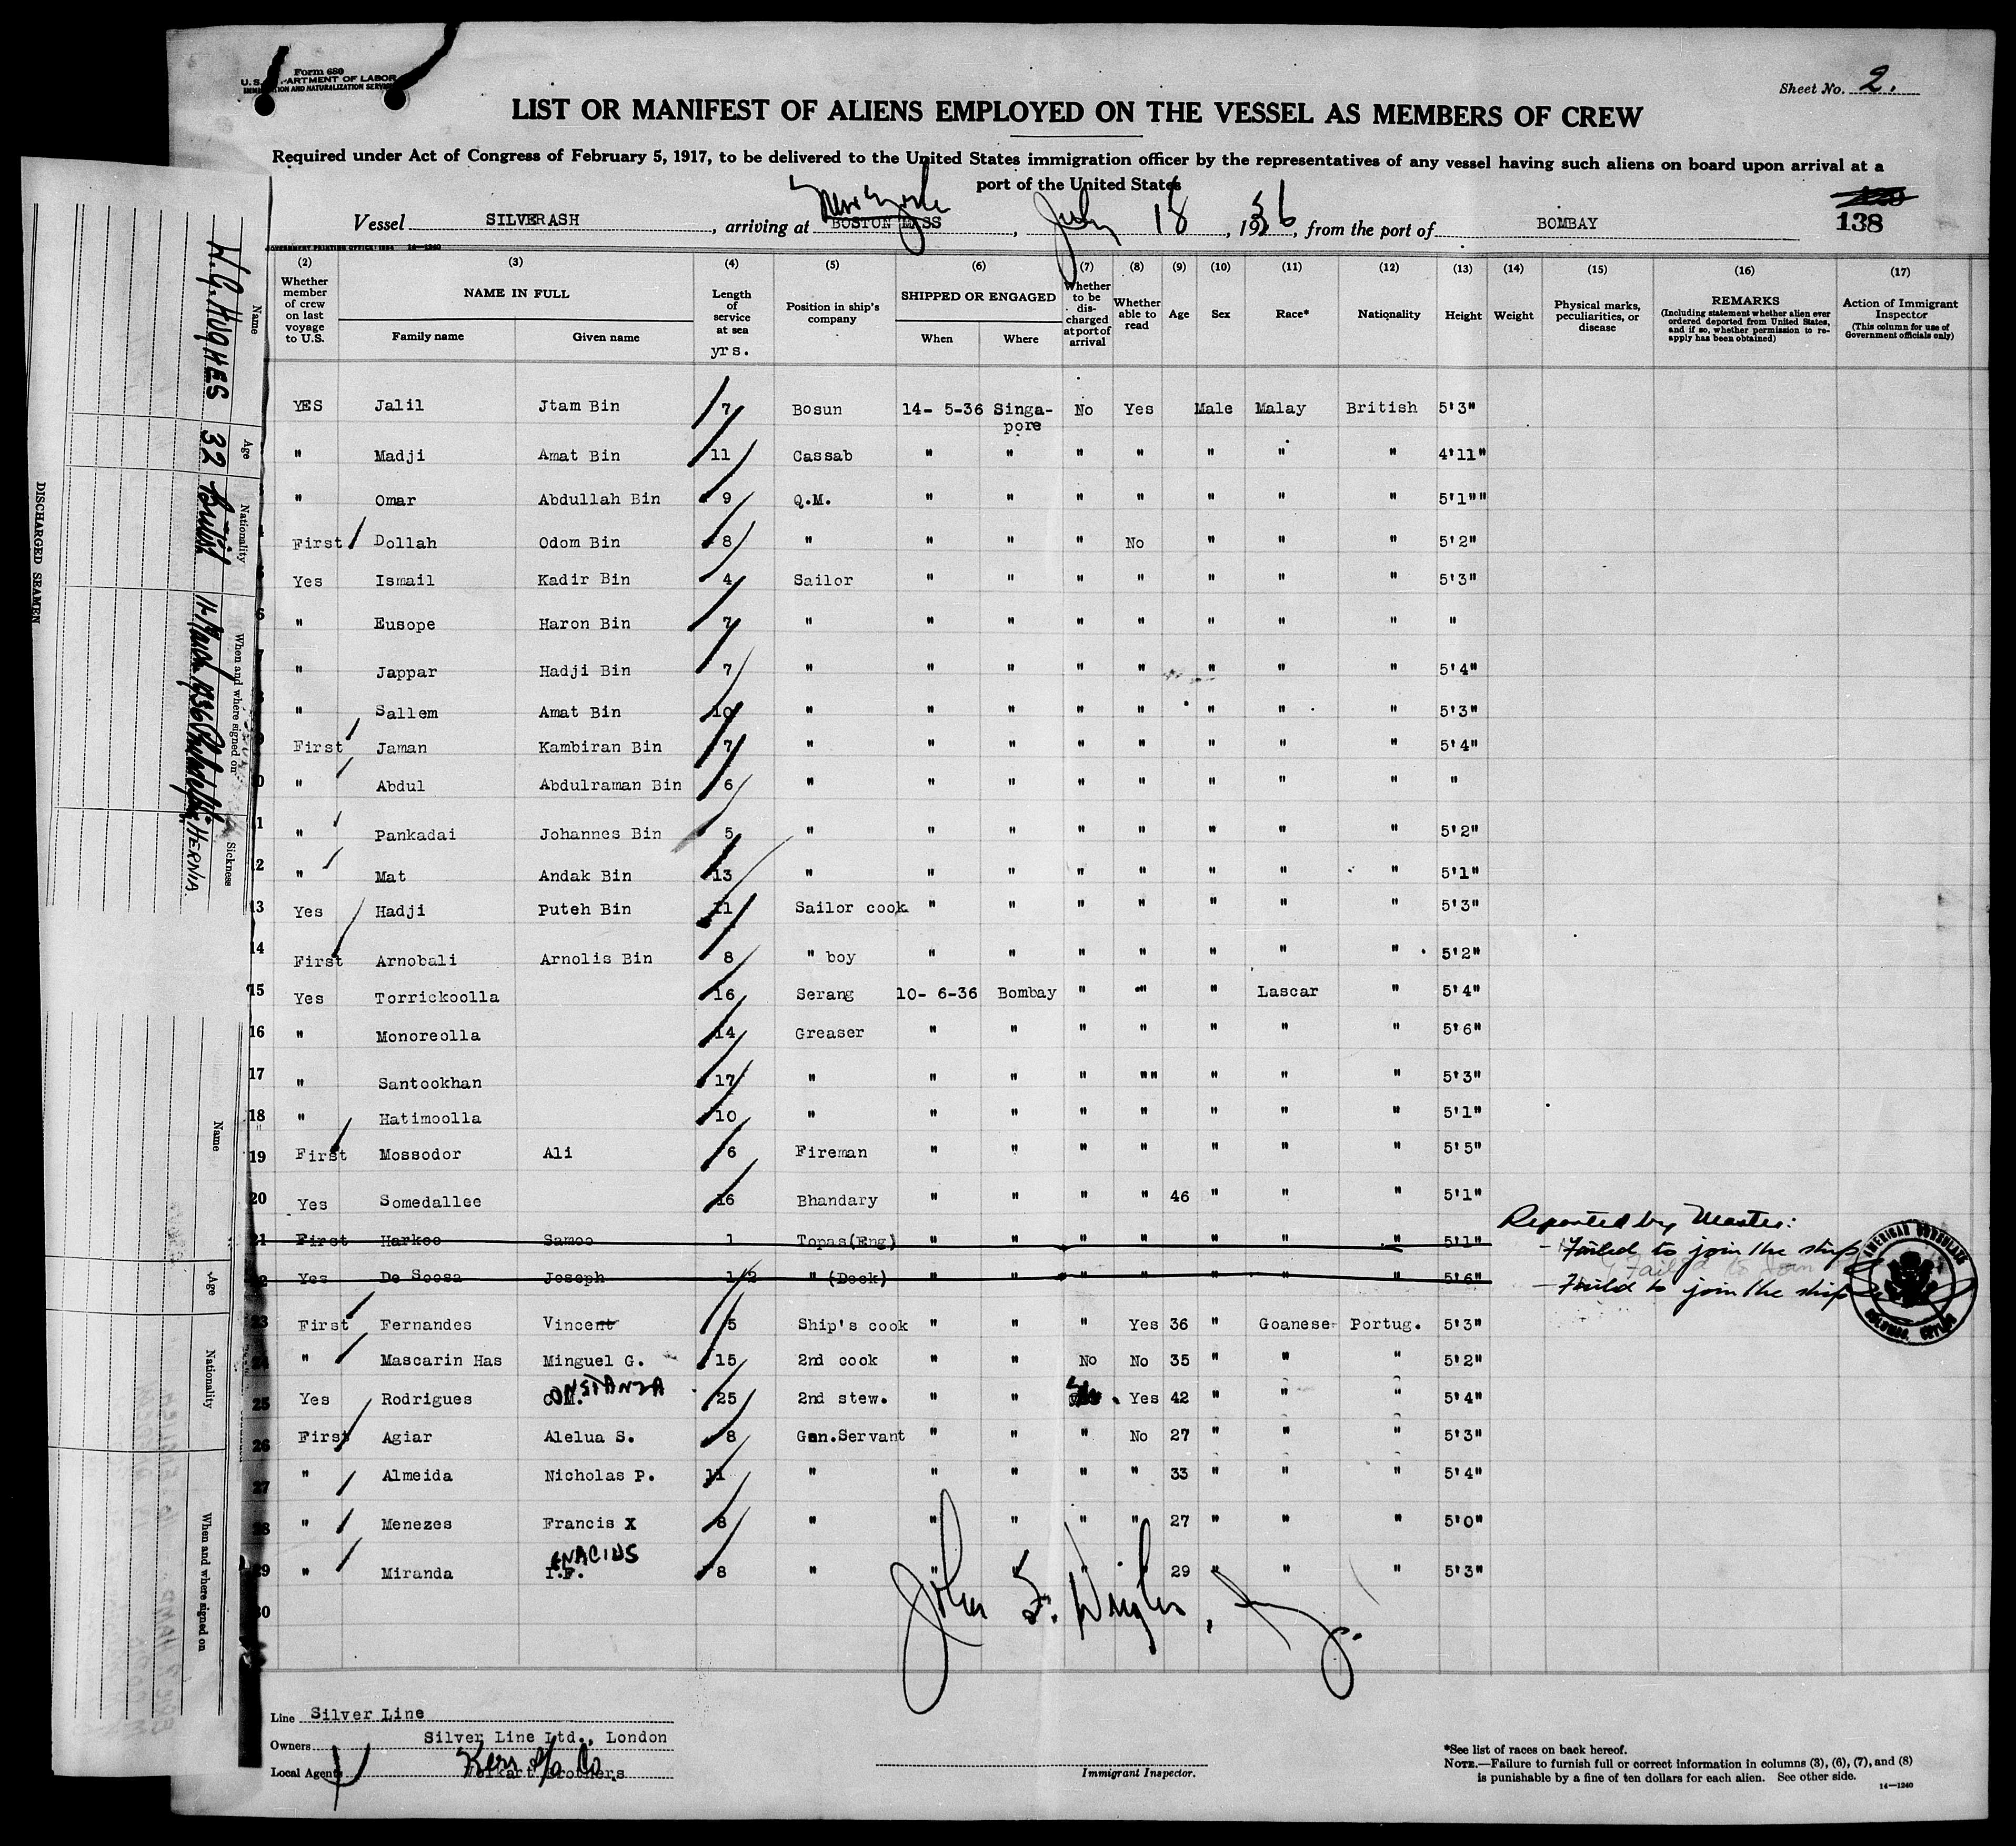 Form 680
U.S. DEPARTMENT OF LABOR
IMMIGRATION AND NATURALIZATION SERVICE
Sheet No. 2.
LIST OR MANIFEST OF ALIENS EMPLOYED ON THE VESSEL AS MEMBERS OF CREW
Required under Act of Congress of February 5, 1917, to be delivered to the United States immigration officer by the representatives of any vessel having such aliens on board upon arrival at a
port of the United States
New York
Vessel SILVERASH, arriving at BOSTON MASS, July 18, 1936, from the port of BOMBAY
138
GOVERNMENT PRINTING OFFICE: 1934 14—1240
(2) (3) (4) (5) (6) (7) (8) (9) (10) (11) (12) (13) (14) (15) (16) (17)
Whether member of crew on last voyage to U.S.
NAME IN FULL
Family name Given name
Length of service at sea
yrs.
Position in ship's company
SHIPPED OR ENGAGED
When Where
Whether to be discharged at port of arrival
Whether able to read
Age Sex Race* Nationality Height Weight
Physical marks, peculiarities, or disease
REMARKS
(Including statement whether alien ever ordered deported from United States, and if so, whether permission to reapply has been obtained)
Action of Immigrant Inspector
(This column for use of Government officials only)
YES Jalil Jtam Bin 7 Bosun 14- 5-36 Singa-pore No Yes Male Malay British 5'3"
" Madji Amat Bin 11 Cassab " " " " " " " 4'11"
" Omar Abdullah Bin 9 Q.M. " " " " " " " 5'1""
First Dollah Odom Bin 8 " " " " No " " " 5'2"
Yes Ismail Kadir Bin 4 Sailor " " " " " " " 5'3"
6 " Eusope Haron Bin 7 " " " " " " " " "
7 " Jappar Hadji Bin 7 " " " " " " " " 5'4"
8 " Sallem Amat Bin 10 " " " " " " " " 5'3"
9 First Jaman Kambiran Bin 7 " " " " " " " " 5'4"
10 " Abdul Abdulraman Bin 6 " " " " " " " " "
11 " Pankadai Johannes Bin 5 " " " " " " " " 5'2"
12 " Mat Andak Bin 13 " " " " " " " " 5'1"
13 Yes Hadji Puteh Bin 11 Sailor cook " " " " " " " 5'3"
14 First Arnobali Arnolis Bin 8 " boy " " " " " " " 5'2"
15 Yes Torrickoolla 16 Serang 10- 6-36 Bombay " " " Lascar " 5'4"
16 " Monoreolla 14 Greaser " " " " " " " 5'6"
17 " Santookhan 17 " " " " "" " " " 5'3"
18 " Hatimoolla 10 " " " " " " " " 5'1"
19 First Mossodor Ali 6 Fireman " " " " " " " 5'5"
20 Yes Somedallee 16 Bhandary " " " " 46 " " " 5'1"
Reported by Master:
21 First Harkoo Samoo 1 Topas(Eng) " " " " " " " 5'1" - Failed to join the ship
22 Yes De Soosa Joseph 1/2 " (Deck) " " " " " " " 5'6" - Failed to join the ship
23 First Fernandes Vincent 5 Ship's cook " " " Yes 36 " Goanese Portug. 5'3"
24 " Mascarin Has Minguel G. 15 2nd cook " " No No 35 " " " 5'2"
ONSTANZA
25 Yes Rodrigues C.M. 25 2nd stew. " " Yes 42 " " " 5'4"
26 First Agiar Alelua S. 8 Gen.Servant " " " No 27 " " " 5'3"
27 " Almeida Nicholas P. 11 " " " " " 33 " " " 5'4"
28 " Menezes Francis X 8 " " " " " 27 " " " 5'0"
GNACIUS
29 " Miranda I.F. 8 " " " " 29 " " " 5'3"
30
AMERICAN CONSULATE
Line Silver Line
Owners Silver Line Ltd., London
Local Agents Kerr S/S Co.
Volkart Brothers
Immigrant Inspector.
*See list of races on back hereof.
NOTE.—Failure to furnish full or correct information in columns (3), (6), (7), and (8)
is punishable by a fine of ten dollars for each alien. See other side.
14—1240
DISCHARGED SEAMEN
Name Age Nationality When and where signed on Sickness
W.G. HUGHES 32 British 11 March 1936 Philadelphia HERNIA
Name Age Nationality When and where signed on